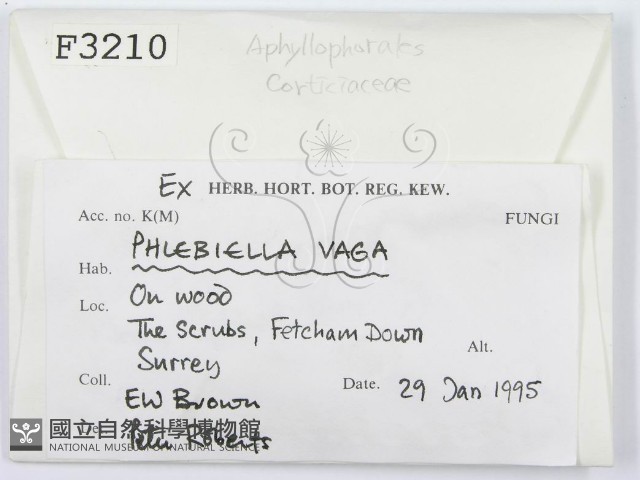 F3210
Aphyllophorales
Corticiaceae
Ex HERB. HORT. BOT. REG. KEW.
Acc. no. K(M) FUNGI
PHLEBIELLA VAGA
Hab. On wood
Loc. The Scrubs, Fetcham Down
Surrey
Alt.
Coll. EW Brown
Date. 29 Jan 1995
Det. Peter Roberts
國立自然科學博物館
NATIONAL MUSEUM OF NATURAL SCIENCE